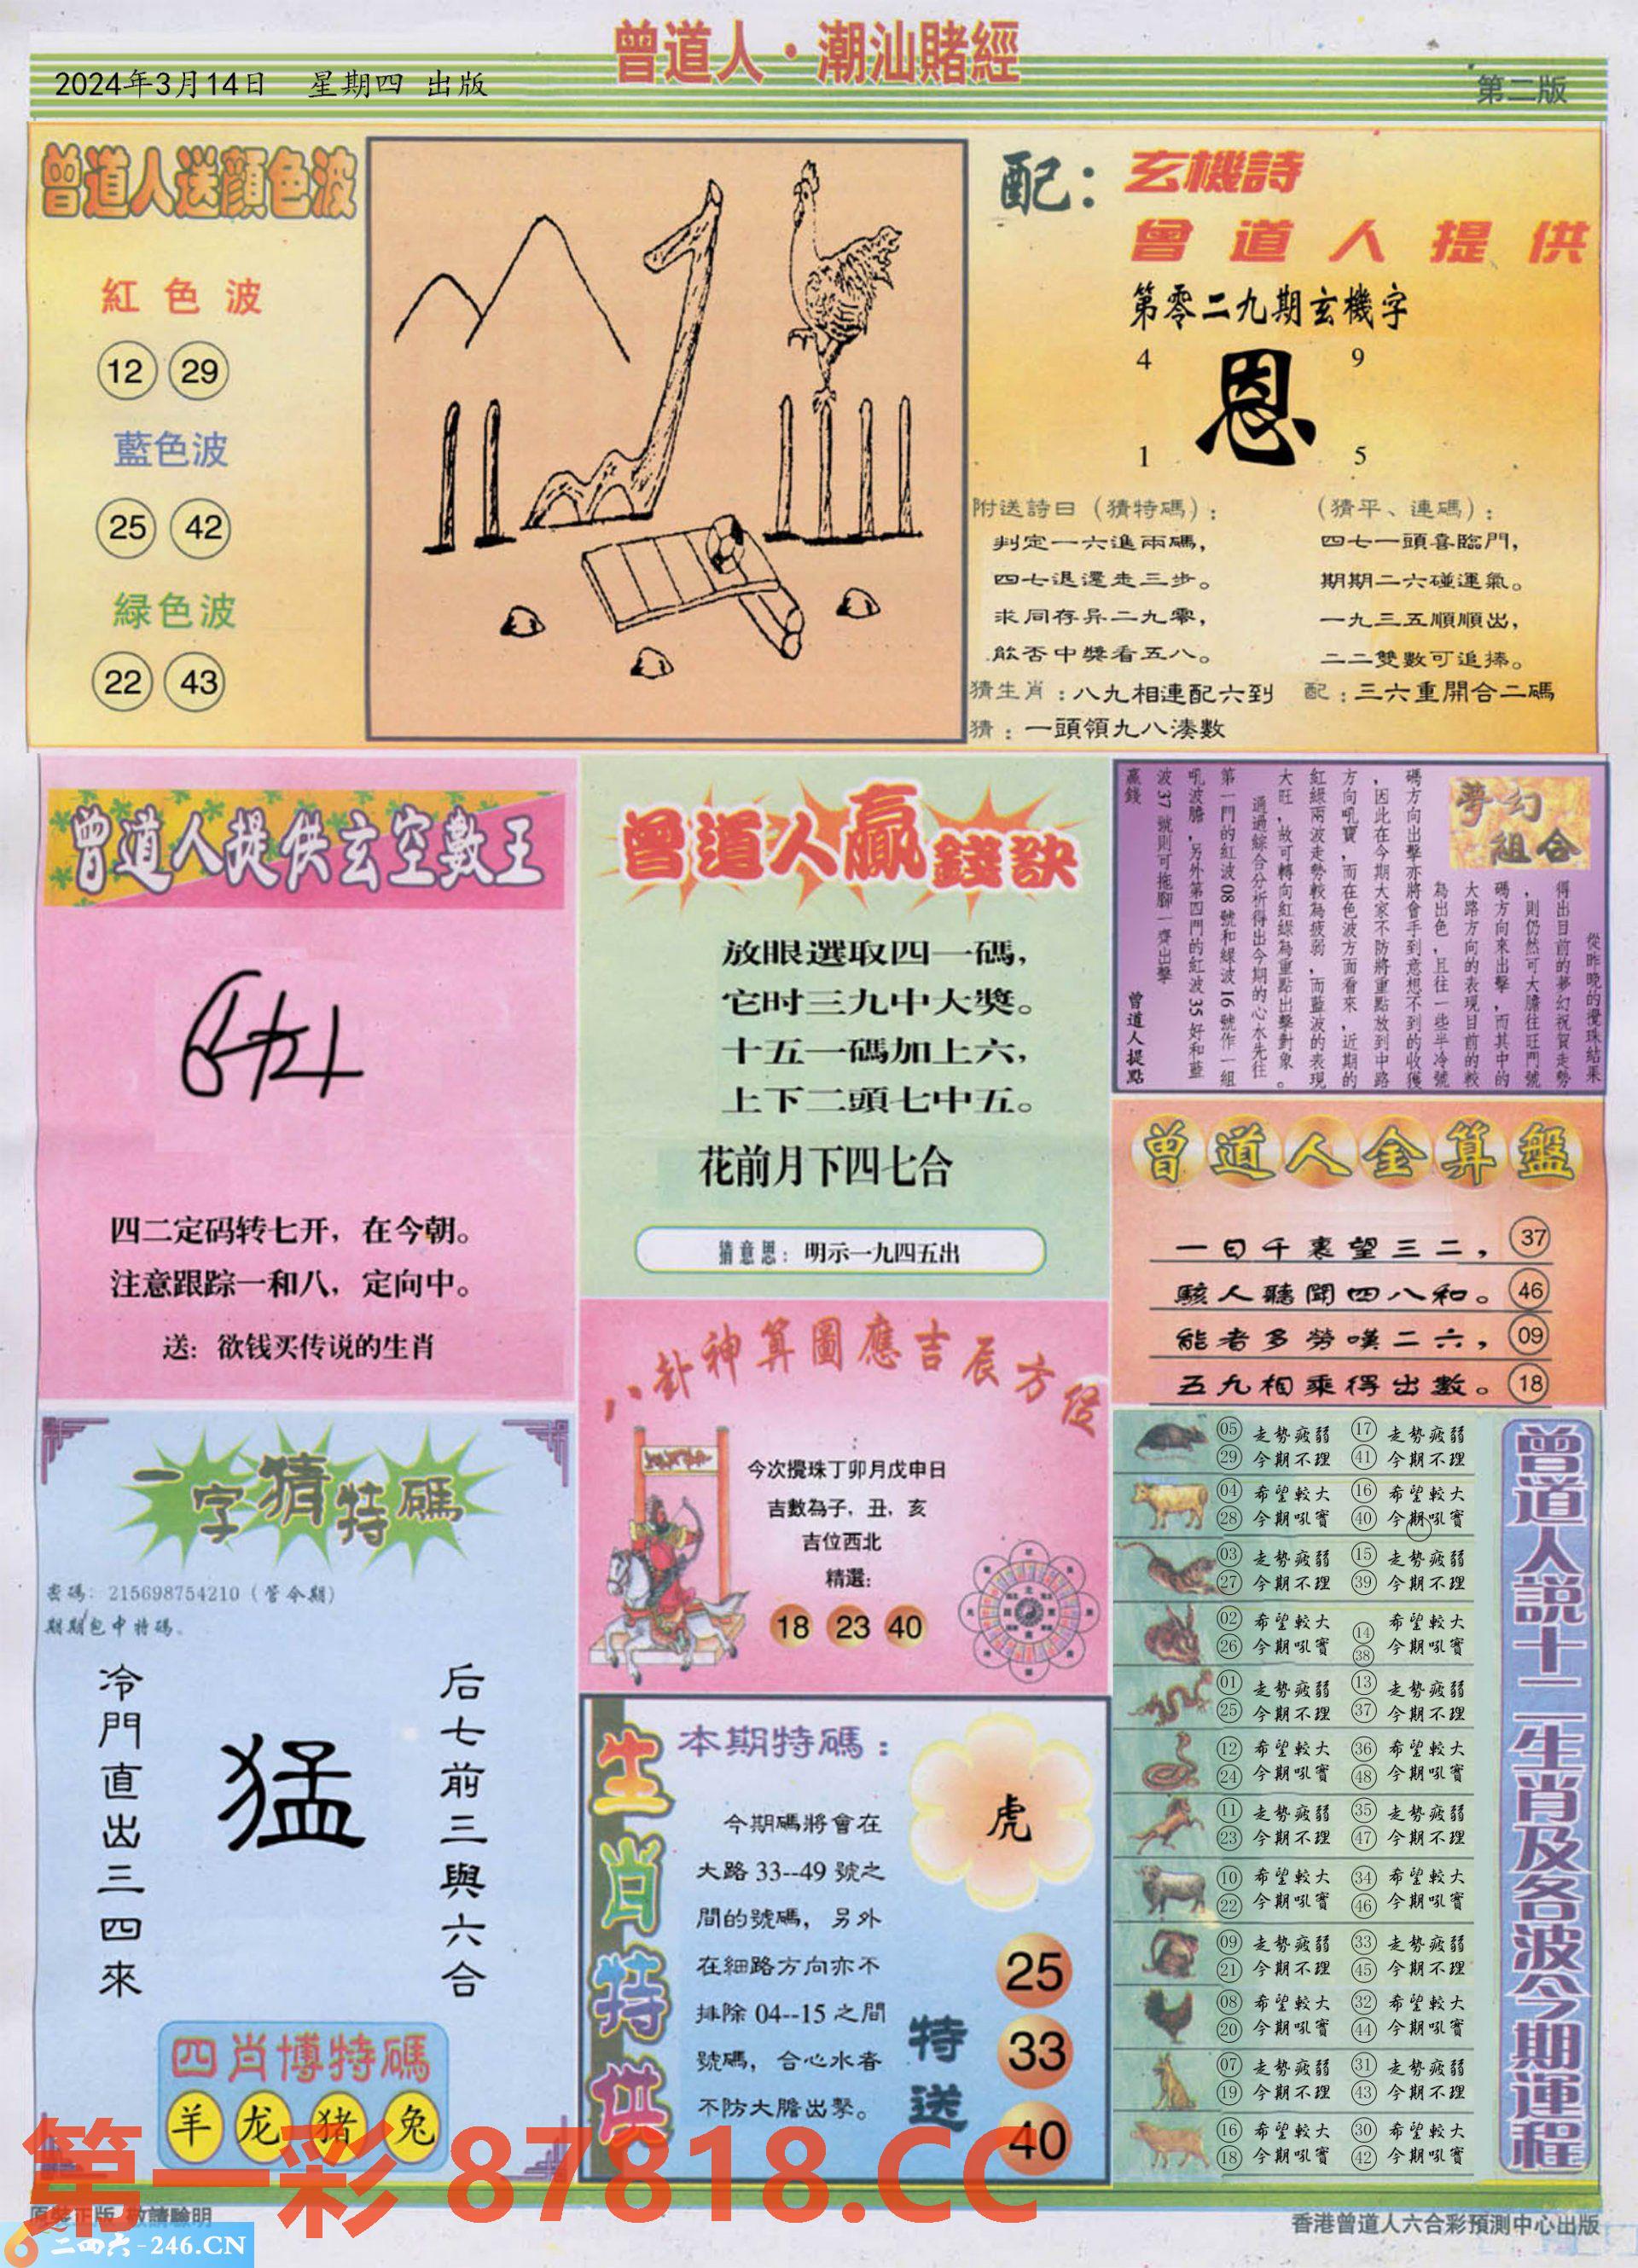 曾道人·潮汕賭經
2024年3月14日 星期四 出版
第二版
曾道人送顔色波
紅色波
12 29
藍色波
25 42
緑色波
22 43
配：玄機詩
曾道人提供
第零二九期玄機字
4 9
恩
1 5
附送詩曰（猜特碼）：
判定一六進兩碼，
四七退還走三步。
求同存异二九零，
能否中獎看五八。
（猜平、連碼）：
四七一頭喜臨門，
期期二六碰運氣。
一九三五順順出，
二二雙數可追捧。
猜生肖：八九相連配六到
配：三六重開合二碼
猜：一頭領九八湊數
曾道人提供玄空數王
四二定码转七开，在今朝。
注意跟踪一和八，定向中。
送：欲钱买传说的生肖
曾道人贏錢訣
放眼選取四一碼，
它时三九中大獎。
十五一碼加上六，
上下二頭七中五。
花前月下四七合
猜意思：明示一九四五出
夢幻組合
從昨晚的攪珠結果
得出目前的夢幻祝賀走勢
，則仍然可大膽往旺門號
碼方向來出擊，而其中的
大路方向的表現目前的較
為出色，且往一些半冷號
碼方向出擊亦將會手到意想不到的收獲
，因此在今期大家不防將重點放到中路
方向吼寶，而在色波方面看來，近期的
紅綠兩波走勢較為疲弱，而藍波的表現
大旺，故可轉向紅綠為重點出擊對象。
通過綜合分析得出今期的心水先往
第一門的紅波08號和緑波16號作一組
吼波膽，另外第四門的紅波35好和藍
波37號則可拖腳一齊出擊
贏錢
曾道人提點
曾道人金算盤
一日千裏望三二， 37
駭人聽聞四八和。 46
能者多勞嘆二六， 09
五九相乘得出數。 18
八卦神算圖應吉辰方位
今次攪珠丁卯月戊申日
吉數為子，丑，亥
吉位西北
精選：
18 23 40
一字猜特碼
密碼：215698754210（管今期）
期期包中特碼。
冷門直出三四來
猛
后七前三與六合
四肖博特碼
羊 龙 猪 兔
生肖特供
本期特碼：
虎
今期碼將會在
大路33--49號之
間的號碼，另外
在細路方向亦不
排除04--15之間
號碼，合心水者
不防大膽出擊。
特送
25
33
40
曾道人說十二生肖及各波今期運程
05 走勢疲弱 17 走勢疲弱
29 今期不理 41 今期不理
04 希望較大 16 希望較大
28 今期吼寳 40 今期吼寳
03 走勢疲弱 15 走勢疲弱
27 今期不理 39 今期不理
02 希望較大 14 希望較大
26 今期吼寳 38 今期吼寳
01 走勢疲弱 13 走勢疲弱
25 今期不理 37 今期不理
12 希望較大 36 希望較大
24 今期吼寳 48 今期吼寳
11 走勢疲弱 35 走勢疲弱
23 今期不理 47 今期不理
10 希望較大 34 希望較大
22 今期吼寳 46 今期吼寳
09 走勢疲弱 33 走勢疲弱
21 今期不理 45 今期不理
08 希望較大 32 希望較大
20 今期吼寳 44 今期吼寳
07 走勢疲弱 31 走勢疲弱
19 今期不理 43 今期不理
16 希望較大 30 希望較大
18 今期吼寳 42 今期吼寳
第一彩 87818.CC
原裝正版 敬請驗明
二四六-246.CN
香港曾道人六合彩預測中心出版